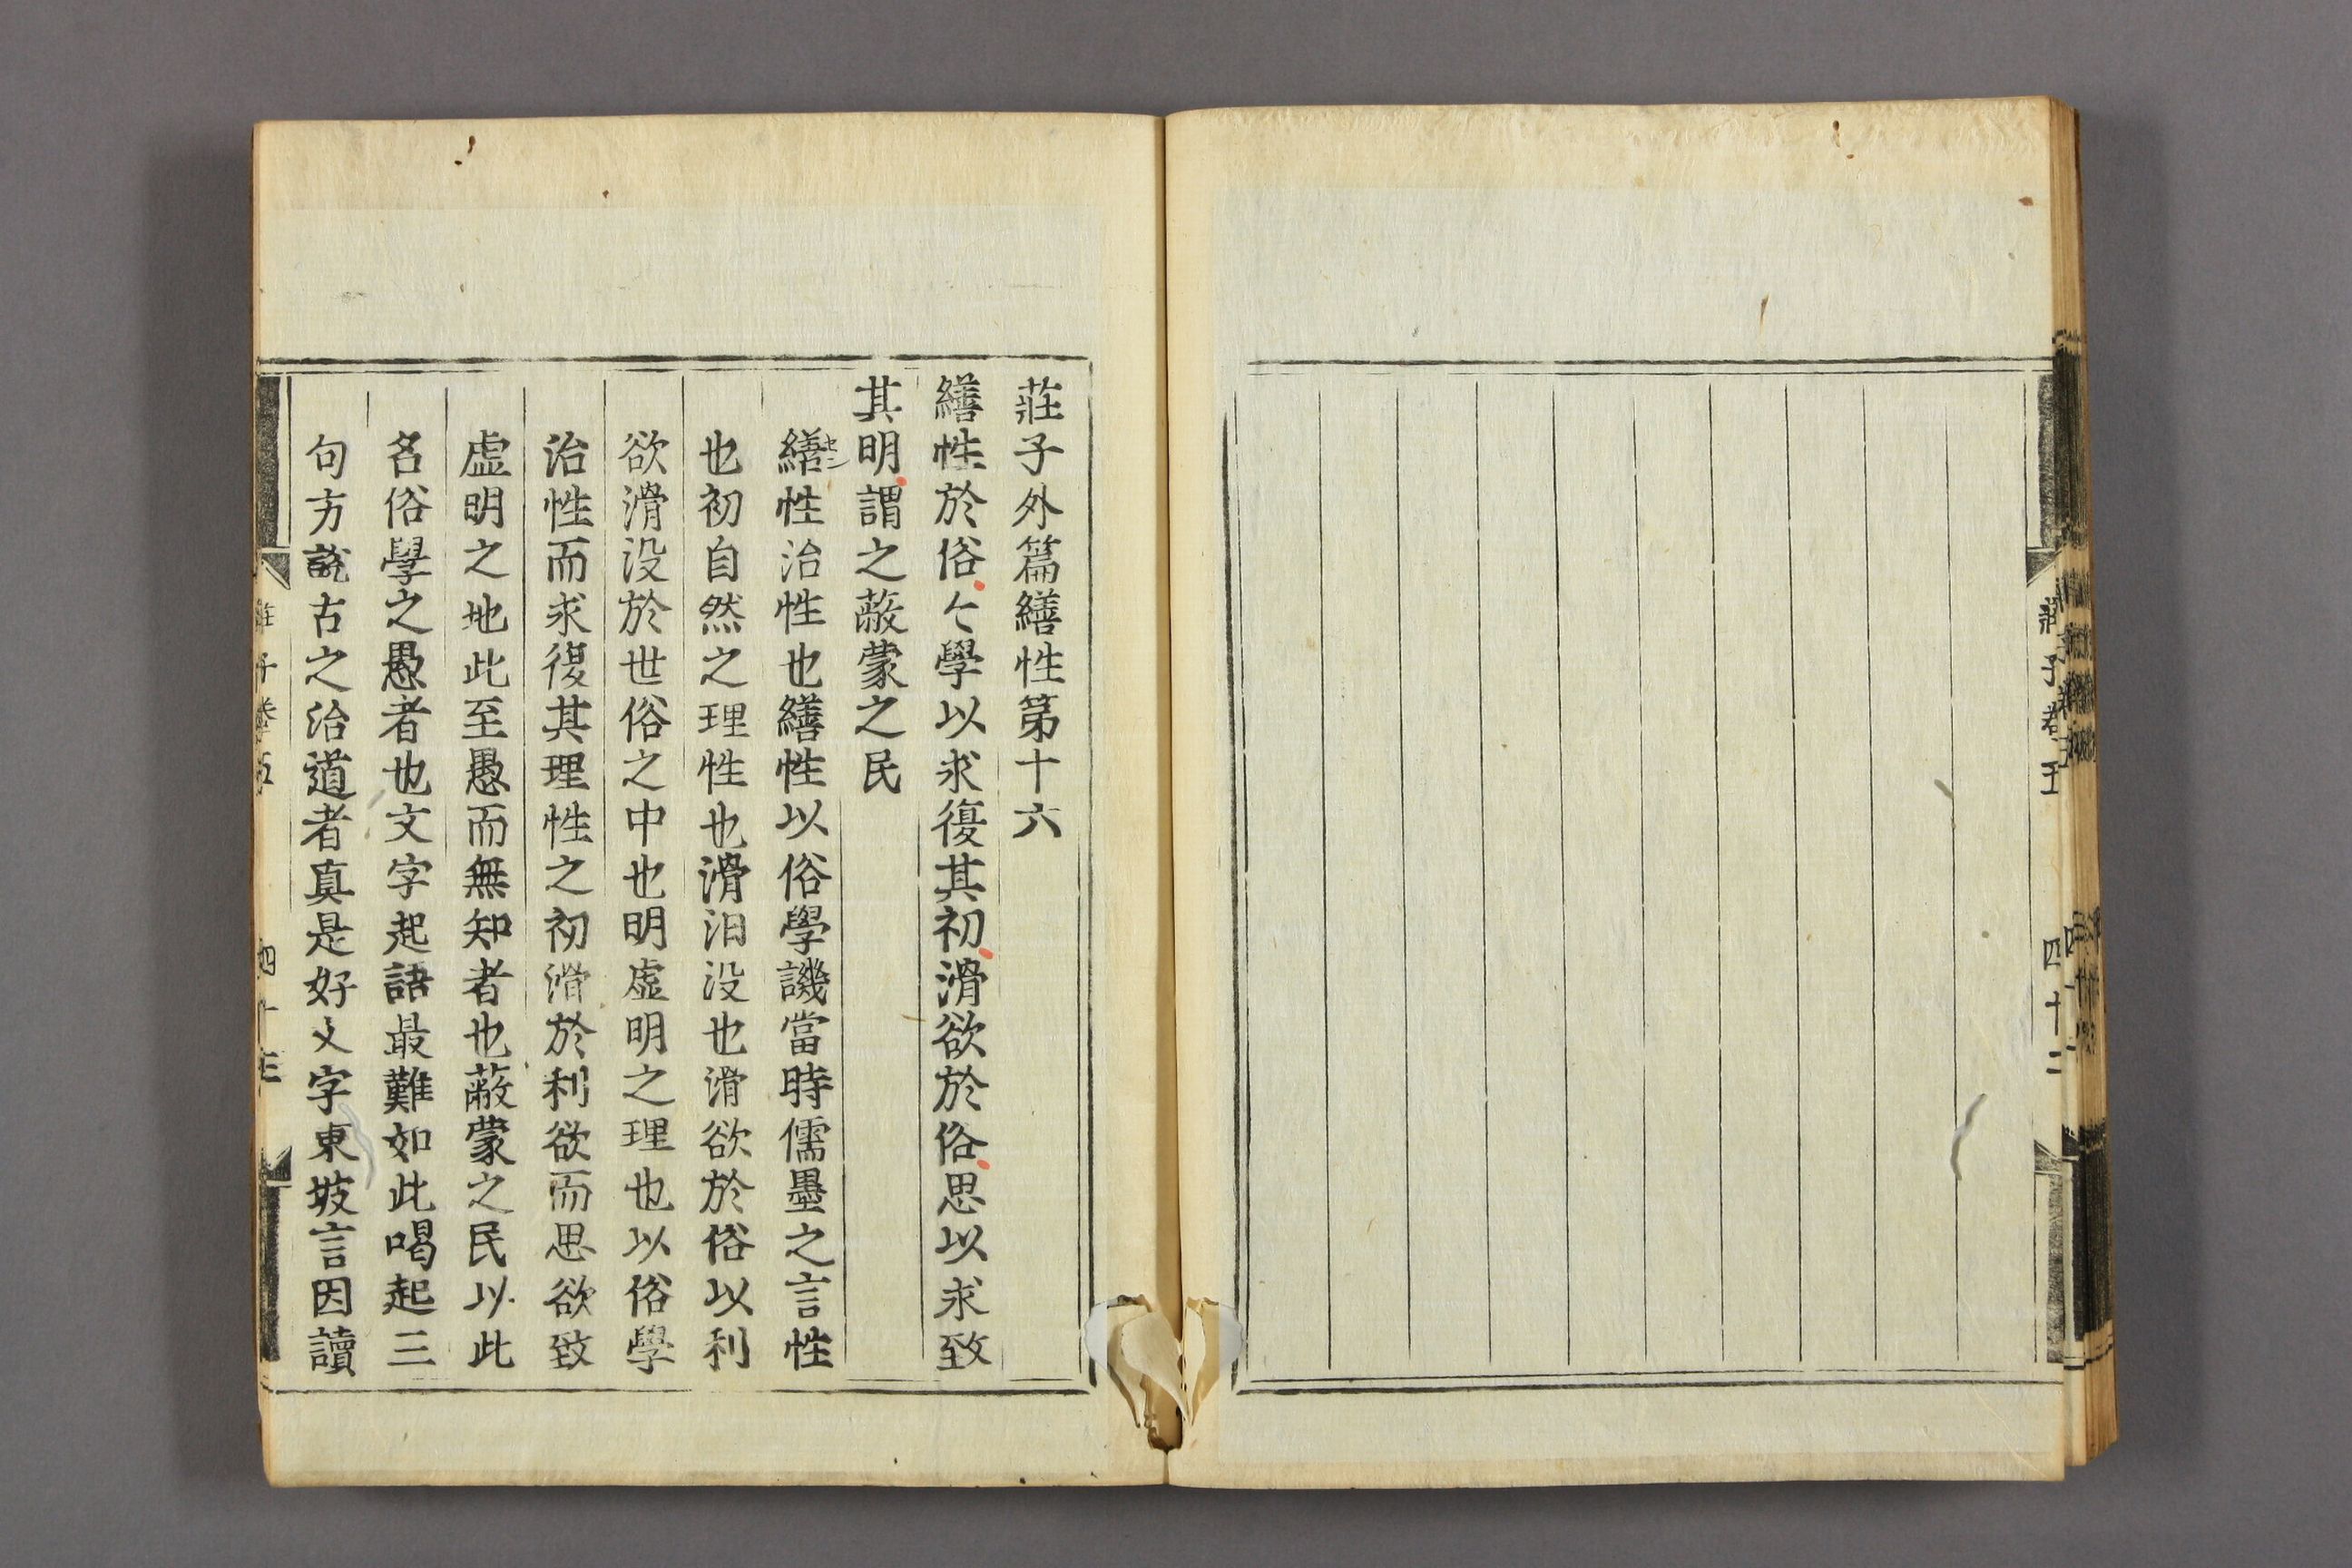 莊子卷五
四十二
莊子外篇繕性第十六
繕性於俗〻學以求復其初滑欲於俗思以求致
其明謂之蔽蒙之民
繕性治性也繕性以俗學譏當時儒墨之言性
也初自然之理性也滑汨没也滑欲於俗以利
欲滑没於世俗之中也明虚明之理也以俗學
治性而求復其理性之初滑於利欲而思欲致
虚明之地此至愚而無知者也蔽蒙之民以此
名俗學之愚者也文字起語最難如此喝起三
句方說古之治道者真是好文字東坡言因讀
莊子卷五